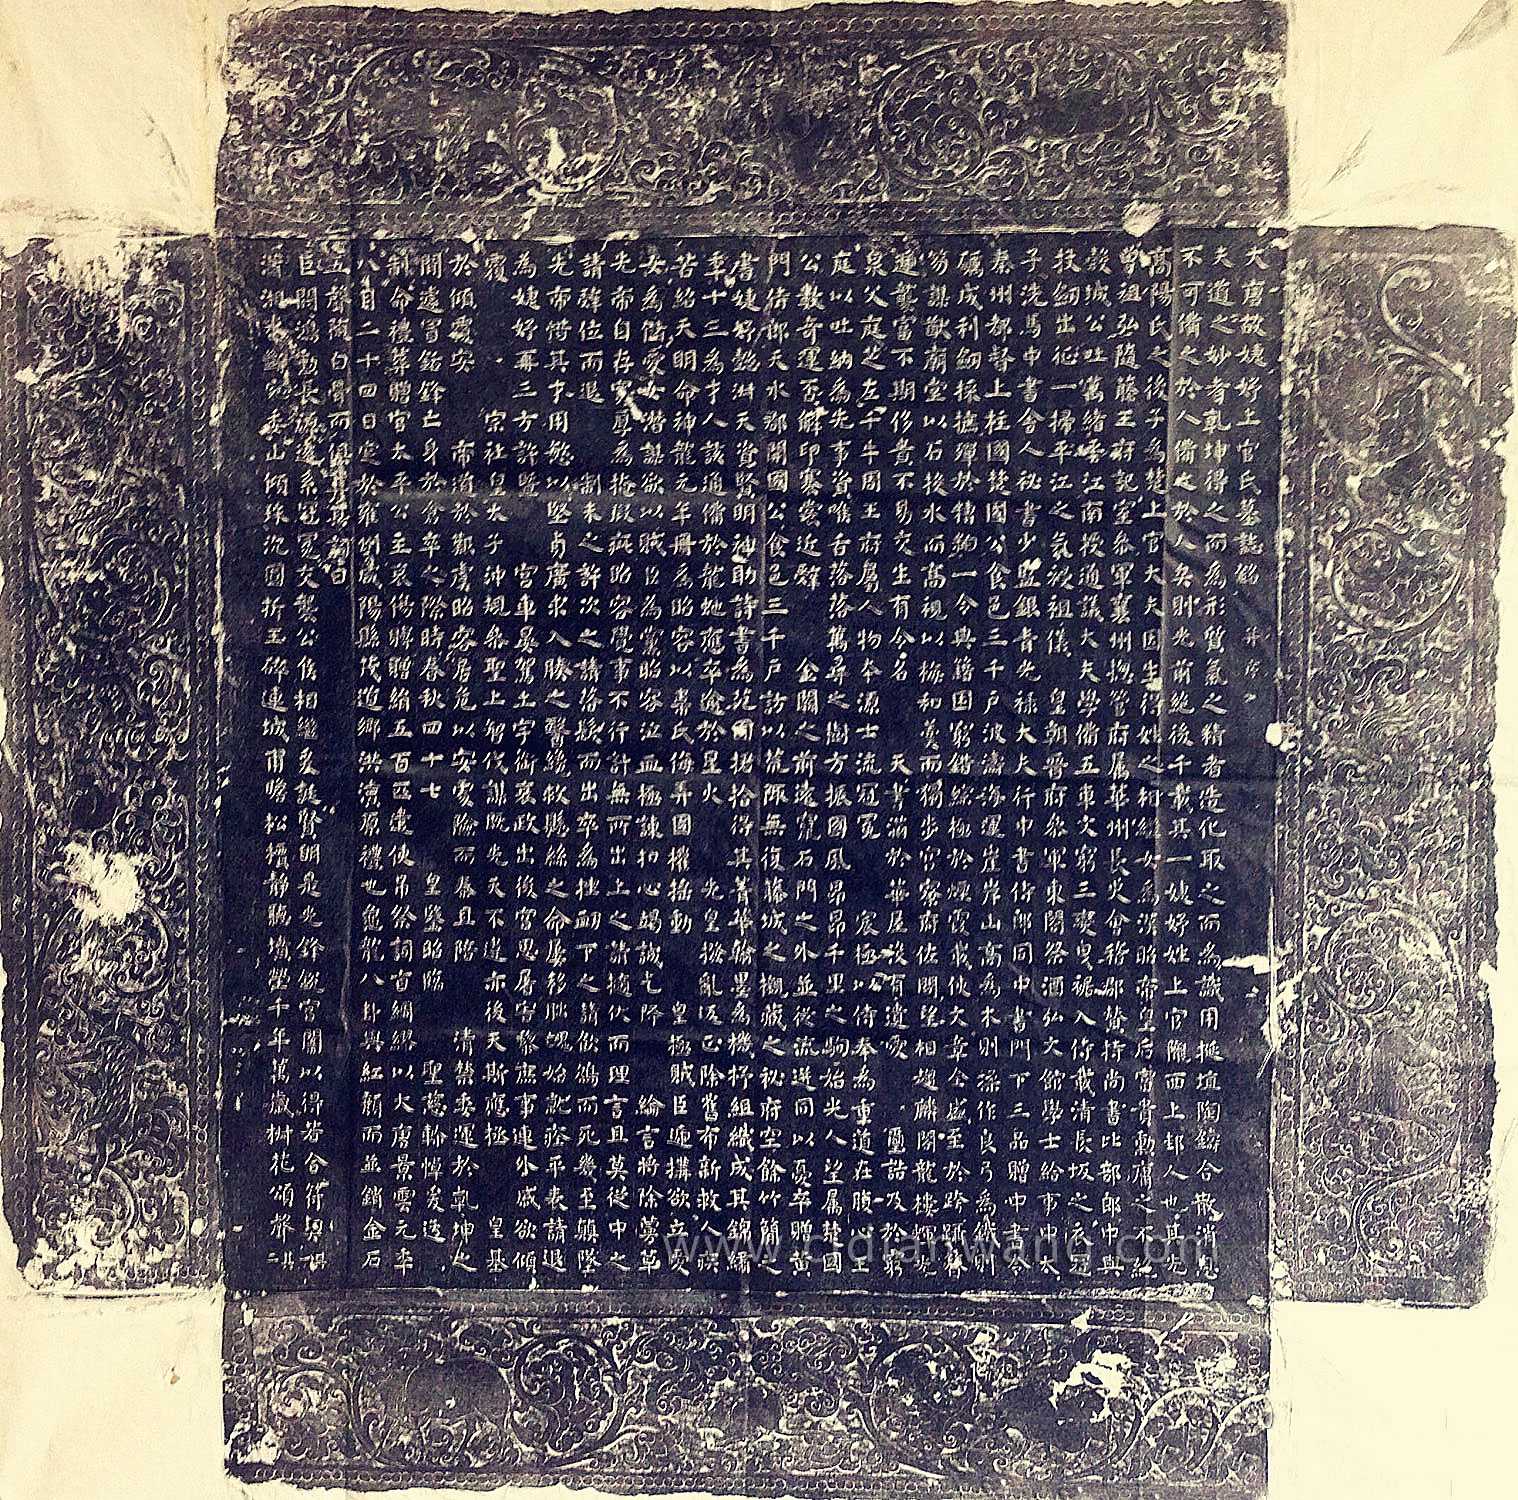 大唐故婕妤上官氏墓誌銘 并序
夫道之妙者乾坤得之而為形質氣之精者造化取之而為識用挻埴陶鑄合散消息
不可備之於人備之於人矣則光前絕後千載其一婕妤姓上官隴西上邽人也其先
高陽氏之後子為楚上官大夫因生得姓之相繼女為漢昭帝皇后富貴勳庸之不絕
曾祖弘隨藤王府記室參軍襄州揔管府屬華州長史會稽郡贊持尚書比部郎中與
穀城公吐萬緒平江南授通議大夫學備五車文窮三變曳裾入侍載清長坂之衣冠
杖劍出征一掃平江之氛祲祖儀 皇朝晉府參軍東閤祭酒弘文館學士給事中太
子洗馬中書舍人秘書少監銀青光祿大夫行中書侍郎同中書門下三品贈中書令
秦州都督上柱國楚國公食邑三千戶波濤海運崖岸山高為木則揉作良弓為鐵則
礪成利劍採摭殫於糟粕一令典籍困窮錯綜極於煙霞載使文章全盛至於跨躡簪
笏謀猷廟堂以石投水而高視以梅和羹而獨步官寮府佐問望相趨麟閣龍樓輝光
遞襲富不期侈貴不易交生有令名 天書滿於華屋沒有遺愛 璽誥及於窮
泉父庭芝左千牛周王府屬人物本源士流冠冕 宸極以侍奉為重道在腹心王
庭以吐納為先事資喉舌落落萬尋之樹方振國風昂昂千里之駒始光人望屬楚國
公數奇運否解印褰裳近辭 金闕之前遠竄石門之外並從流迸同以憂卒贈黃
門侍郎天水郡開國公食邑三千戶訪以荒陬無復藤城之櫬藏之秘府空餘竹簡之
書婕妤懿淑天資賢明神助詩書為苑囿捃拾得其菁華翰墨為機杼組織成其錦繡
年十三為才人該通備於龍蛇應卒逾於星火 先皇撥亂返正除舊布新救人疾
苦紹天明命神龍元年冊為昭容以韋氏侮弄國權搖動 皇極賊臣遞構欲立愛
女為儲愛女潛謀欲以賊臣為黨昭容泣血極諫扣心竭誠乞降 綸言將除蔓草
先帝自存寬厚為掩瑕疵昭容覺事不行計無所出上之請擿伏而理言且莫從中之
請辭位而退 制未之許次之請落髮而出卒為挫衄下之請飲鴆而死幾至顛墜
先帝惜其才用慜以堅貞廣求入腠之醫纔救懸絲之命屢移朏魄始就痊平表請退
為婕妤再三方許暨 宮車晏駕土宇銜哀政出後宮思屠害黎庶事連外戚欲傾
覆 宗社皇太子沖規參聖上智伐謀既先天不違亦後天斯應拯 皇基
於傾覆安 帝道於艱虞昭容居危以安處險而泰且陪 清禁委運於乾坤之
間遽冒銛鋒亡身於倉卒之際時春秋四十七 皇鑒昭臨 聖慈軫悼爰造
制命禮葬贈官太平公主哀傷賻贈絹五百匹遣使弔祭詞旨綢繆以大唐景雲元年
八月二十四日窆於雍州咸陽縣茂道鄉洪瀆原禮也龜龍八卦與紅顏而並銷金石
五聲隨白骨而俱葬其詞曰
巨閥鴻勳長源遠系冠冕交襲公侯相繼爰誕賢明是光鋒銳宮闈以得若合符契其一
瀟湘水斷宛委山傾珠沉圓折玉碎連城甫瞻松檟靜聽墳塋千年萬歲椒花頌聲其二
www.cidianwang.com